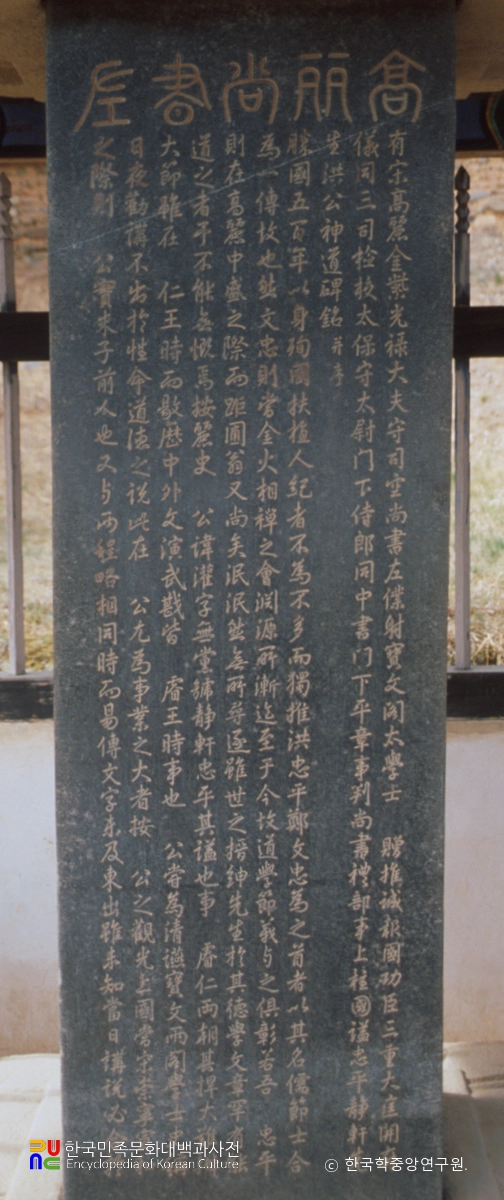 高麗尚書左
有宋高麗金紫光祿大夫守司空尚書左僕射寶文閣太學士 贈推誠報國功臣三重大匡開
儀同三司檢校太保守太尉門下侍郎同中書門下平章事判尚書禮部事上柱國謚忠平靜軒
先生洪公神道碑銘 并序
勝國五百年以身殉國扶植人紀者不為不多而獨推洪忠平鄭文忠為之首者以其名儒節士合
為一傳故也然文忠則當金火相禪之會淵源所漸迄至于今故道學節義与之俱彰若吾 忠平
則在高麗中盛之際而距圃翁又尚矣泯泯然無所尋逐雖世之搢紳先生於其德學文章罕
道之者于不能無慨焉按麗史 公諱灌字無黨號靜軒忠平其謚也事 睿仁兩朝其捍大
大節雖在 仁王時而敭歷中外文演武戡皆 睿王時事也 公嘗為清讌寶文兩閣學士
日夜勸講不出於性命道德之說此在 公尤為事業之大者按 公之觀光上國當宋崇寧
之際則 公實朱子前人也又与兩程略相同時而易傳文字未及東出雖未知當日講說必
한국민족문화대백과사전
Encyclopedia of Korean Culture
© 한국학중앙연구원.